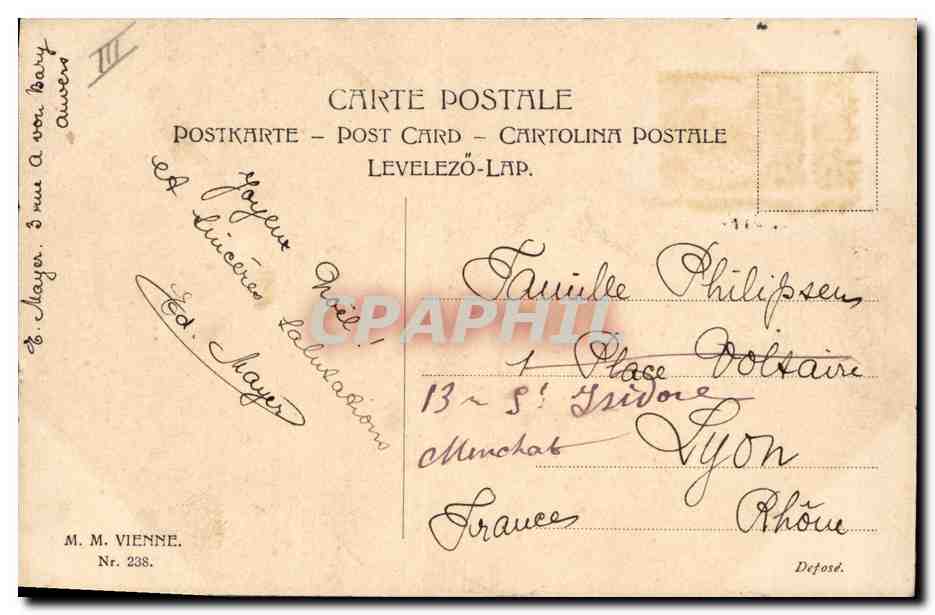 III
E. Mayer. 3 rue A von Bary
anvers
CARTE POSTALE
POSTKARTE – POST CARD – CARTOLINA POSTALE
LEVELEZŐ-LAP.
Joyeux Noël!
et sincères salutations
Ed. Mayer
CPAPHIL
Famille Philipsen
1 Place Voltaire
13 r St Isidore
Monchat
Lyon
France Rhône
M. M. VIENNE.
Nr. 238.
Deposé.